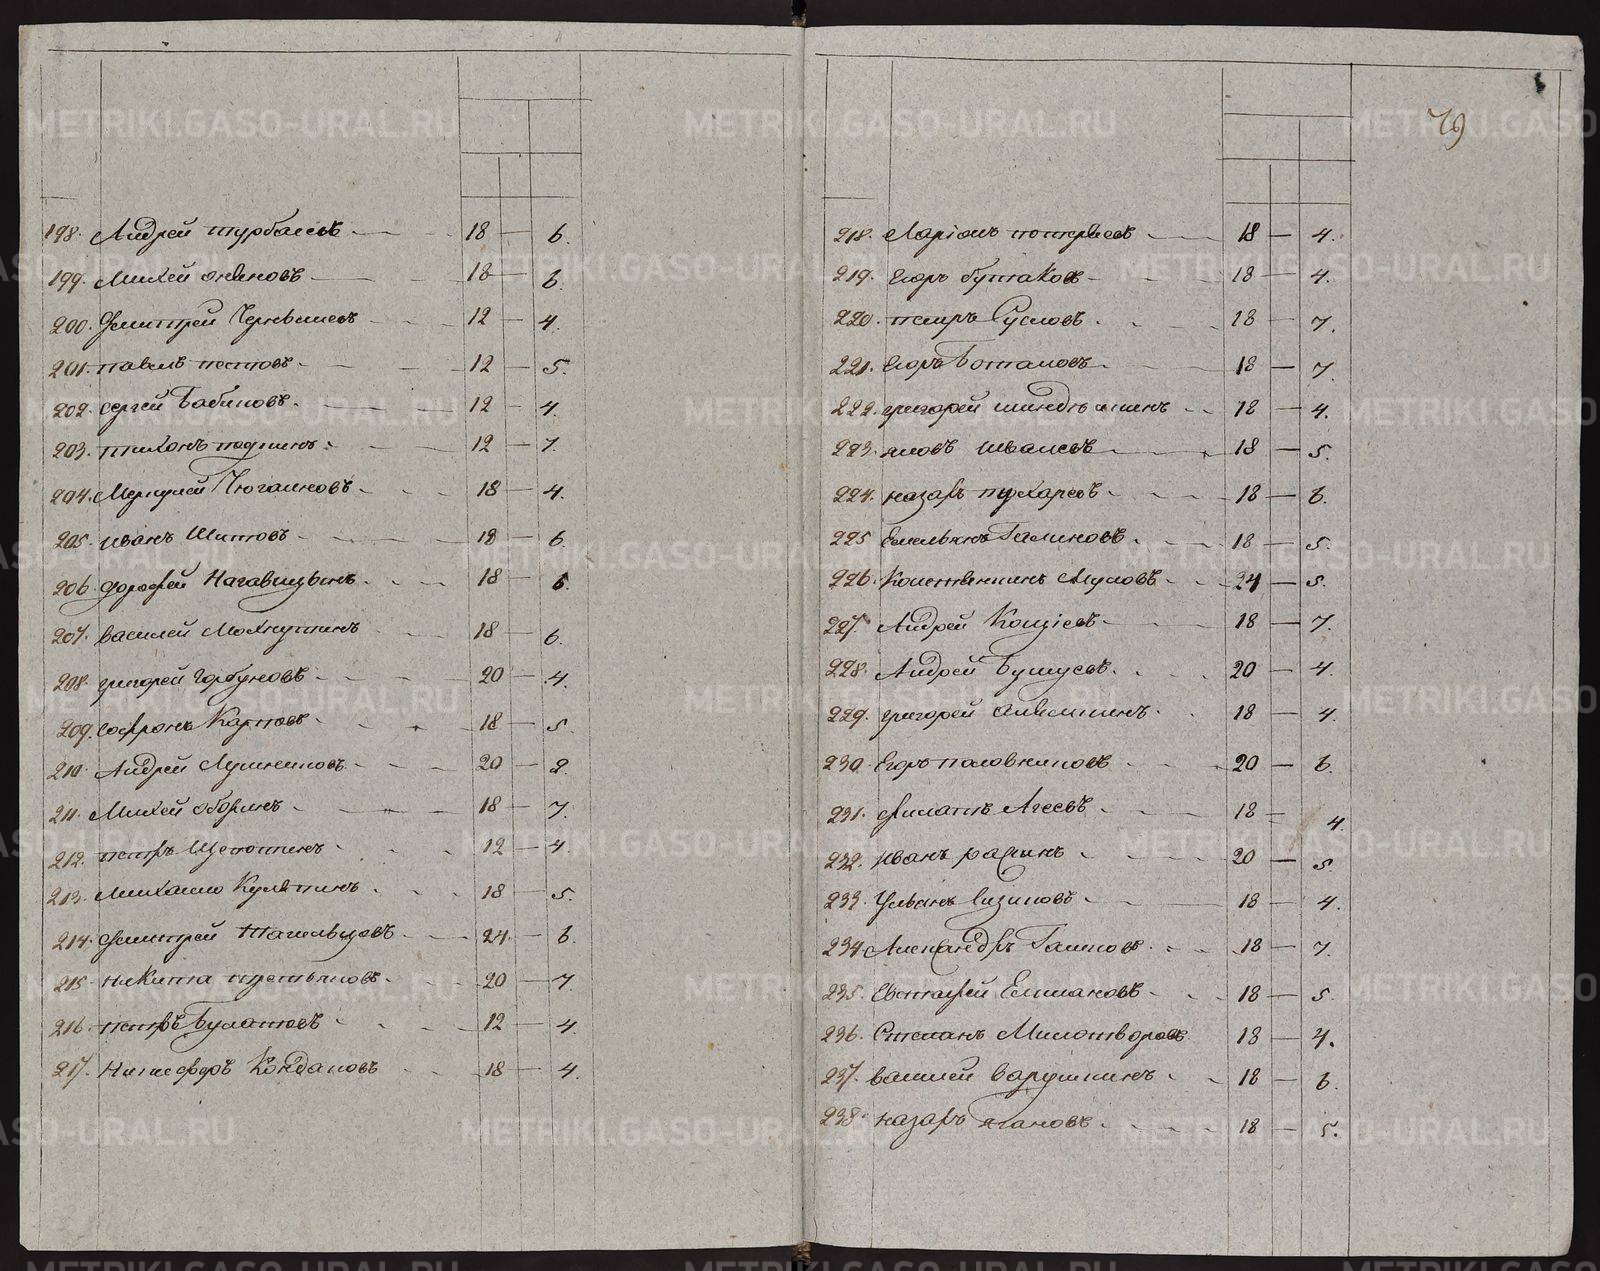 198. Андрей турбаевъ 18 — 6.
199. Михей 18 — 6.
200. Дмитрей Чернышевъ 12 — 4.
201. павелъ пестовъ 12 — 5.
202. сергей Бабиновъ 12 — 4.
203. тихонъ 12 — 7.
204. Меркурей Чюгаиновъ 18 — 4.
205. иванъ Шитовъ 18 — 6.
206. дорофей Нагавицынъ 18 — 6.
207. василей Мохнуткинъ 18 — 6.
208. григорей горбуновъ 20 — 4.
209. софронъ Карповъ 18 — 5
210. Андрей 20 — 2.
211. Михей оборинъ 18 — 7.
212. петръ Щепоткинъ 12 — 4.
213. михаило 18 — 5.
214. Дмитрей Тагильцовъ 24. — 6.
215. никита третьяковъ 20 — 7
216. петръ Булатовъ 12 — 4
217. Никифоръ 18 — 4.
79
218. Ларіонъ 18 — 4.
219. Егоръ бутаковъ 18 — 4.
220. петръ Сусловъ 18 — 7.
221. Егоръ Боталовъ 18 — 7
222. григорей 18 — 4.
223. яковъ 18 — 5.
224. назаръ пухаревъ 18 — 6.
225 Емельянъ Галиновъ 18 — 5.
226. Констентинъ 24 — 5.
227. Андрей Кощеевъ 18 — 7.
228. Андрей Бушуевъ 20 — 4.
229. григорей 18 — 4.
230. Егоръ половниковъ 20 — 6.
231. филатъ Агеевъ 18 — 4.
232. иванъ 20 — 5.
233. Ульянъ Сизиковъ 18 — 4.
234. Александръ Галиновъ 18 — 7.
235. Евстафей Елшановъ 18 — 5
236. Степанъ Милотворовъ 18 — 4.
237. василей варушкинъ 18 — 6.
238. назаръ агановъ 18 — 5.
METRIKI.GASO-URAL.RU